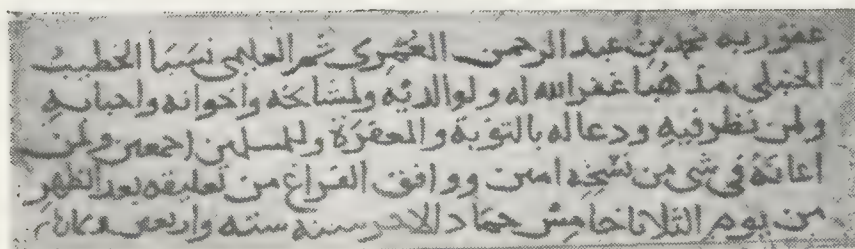 عفو ربه محمد بن عبد الرحمن العمري ثم العليمي نسبا الخطيب
الحنبلي مذهبا غفر الله له ولوالديه ولمشايخه واخوانه واحبابه
ولمن نظر فيه ودعا له بالتوبة والمغفرة وللمسلمين اجمعين ولمن
اعانه في شي من نسخه امين ووافق الفراغ من تعليقه بعد الظهر
من يوم الثلاثا خامس جماد الاخر سنة واربعين